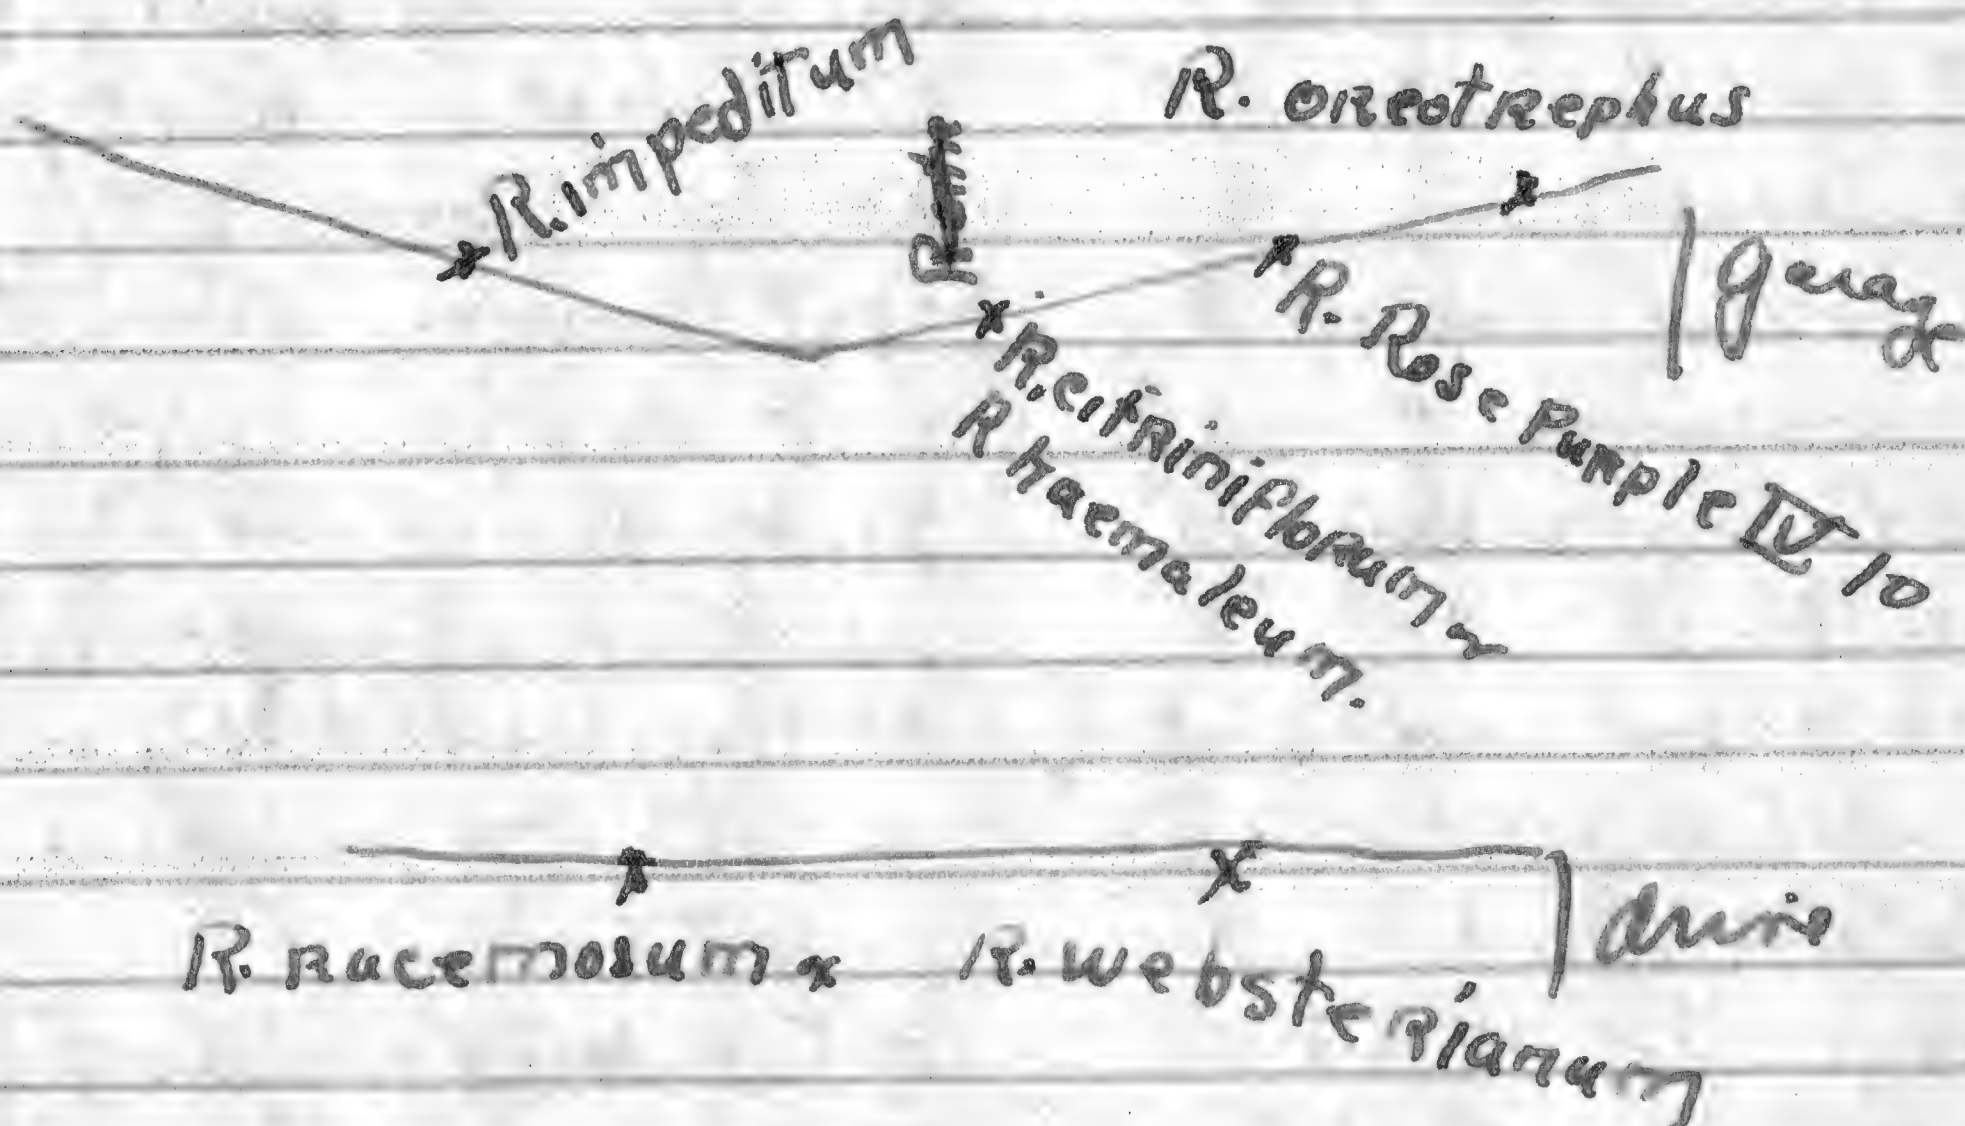 R. impeditum
R. oreotrephus
garage
R. Rose Purple IV 10
R. citriniflorum x
R haemaleum.
R. racemosum x R. websterianum
drive